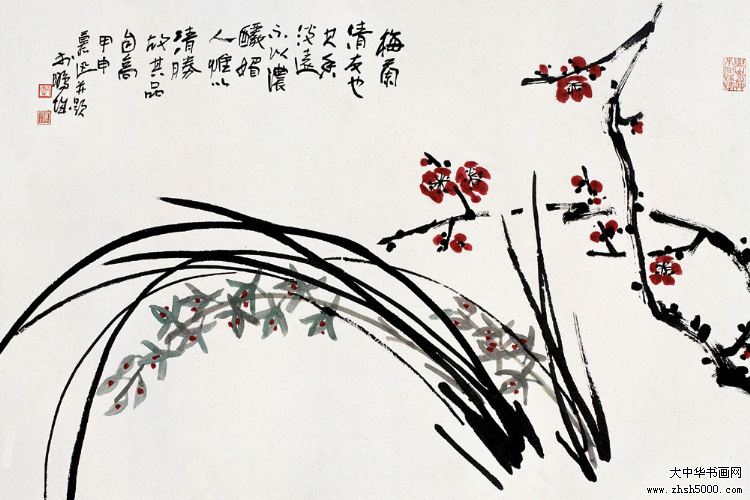 梅兰
清友也
其香
淡远
不以浓
酽媚
人惟以
清胜
故其品
自高
甲申
大中华书画网
www.zhsh5000.com